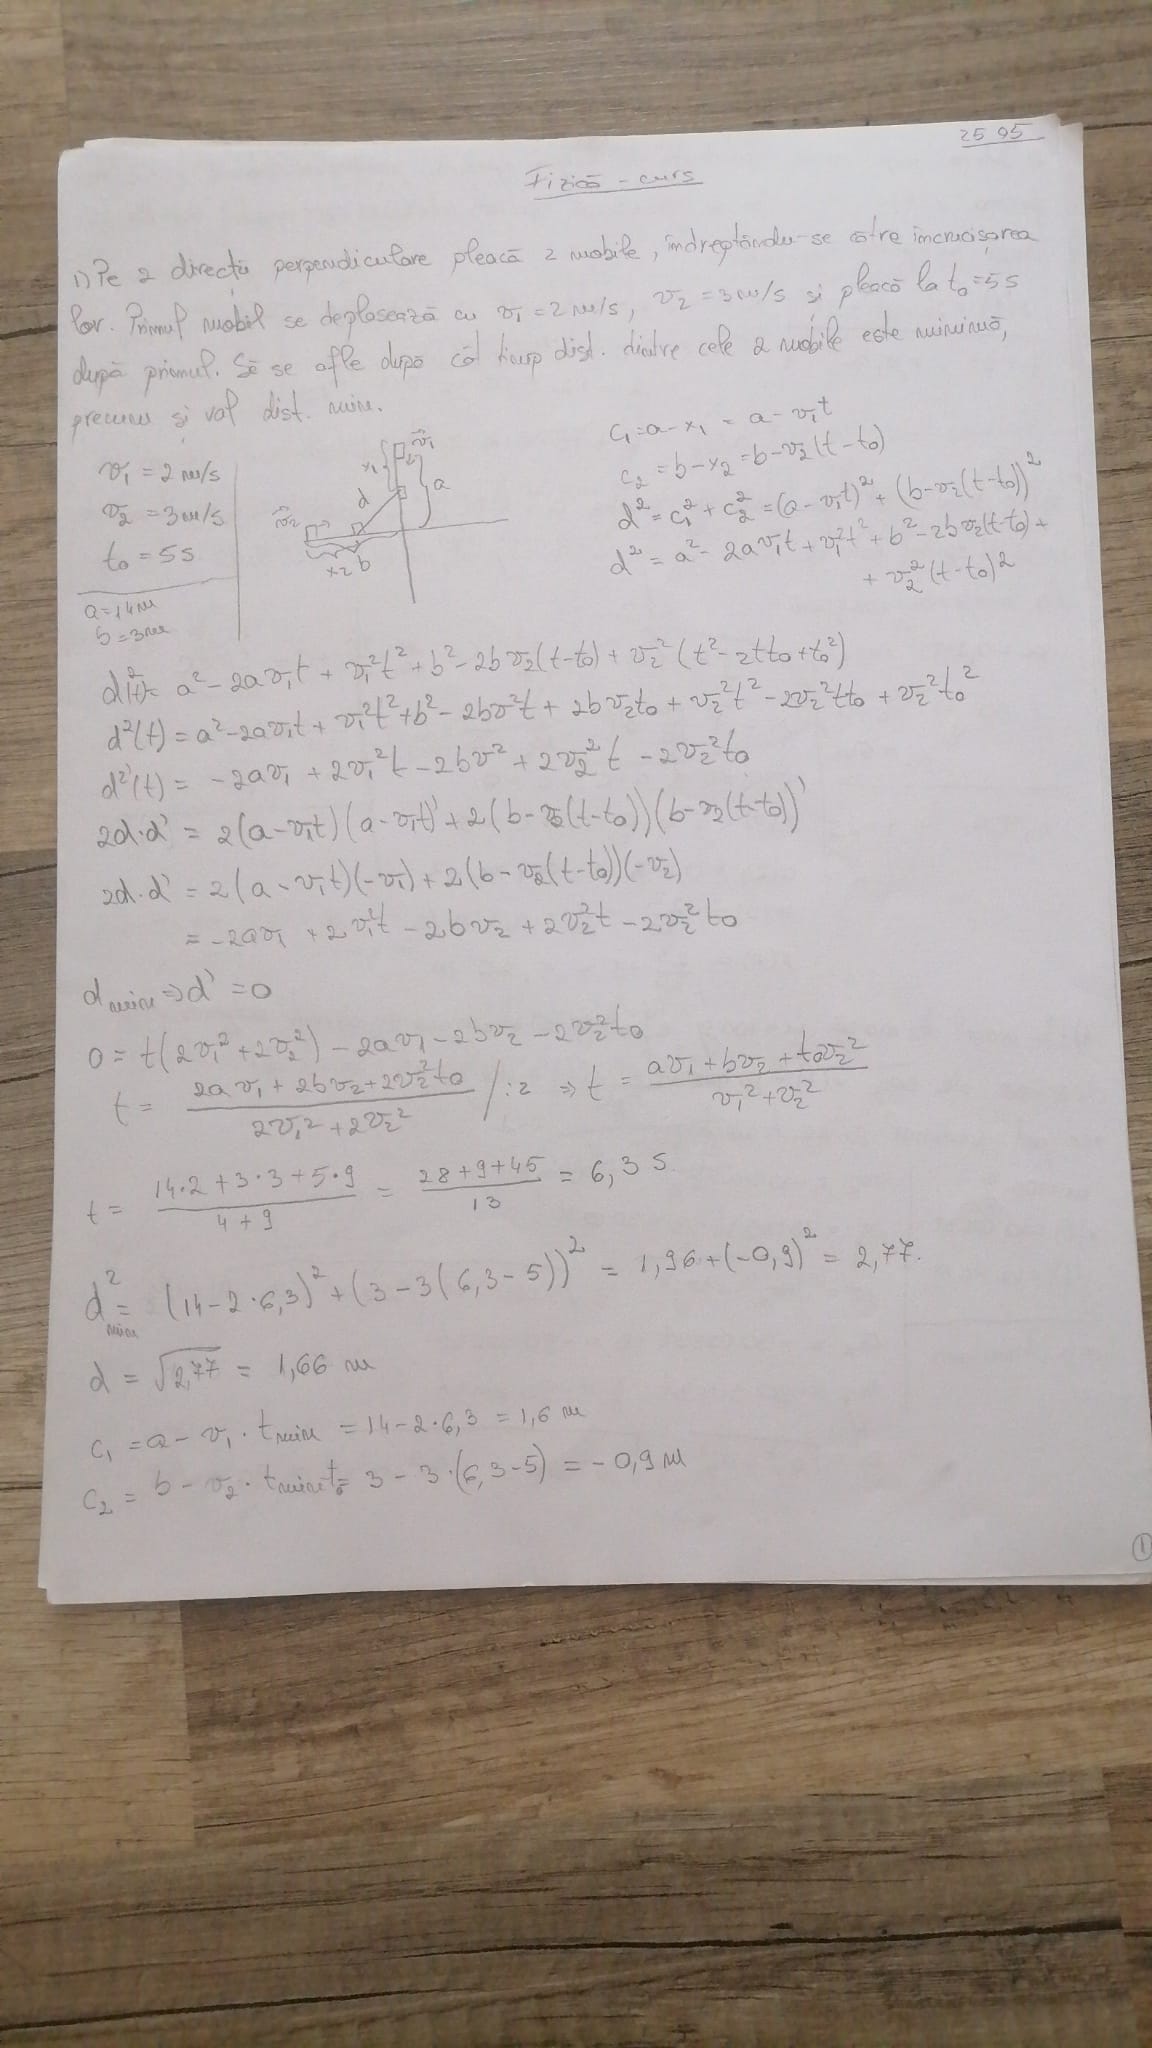 25 05
Fizică - curs
1) Pe 2 direcții perpendiculare pleacă 2 mobile, îndreptându-se către încrucișarea
lor. Primul mobil se deplasează cu v₁ = 2 m/s, v₂ = 3 m/s și pleacă la t₀ = 5 s
după primul. Să se afle după cât timp dist. dintre cele 2 mobile este minimă,
precum și val dist. min.
v₁ = 2 m/s
v₂ = 3 m/s
t₀ = 5 s
a = 14 m
b = 3 m
v⃗₁
x₁
a
d
v⃗₂
x₂ b
c₁ = a - x₁ = a - v₁t
c₂ = b - x₂ = b - v₂(t - t₀)
d² = c₁² + c₂² = (a - v₁t)² + (b - v₂(t - t₀))²
d² = a² - 2av₁t + v₁²t² + b² - 2bv₂(t - t₀) +
+ v₂²(t - t₀)²
d²(t) = a² - 2av₁t + v₁²t² + b² - 2bv₂(t - t₀) + v₂²(t² - 2tt₀ + t₀²)
d²(t) = a² - 2av₁t + v₁²t² + b² - 2bv²t + 2bv₂t₀ + v₂²t² - 2v₂²tt₀ + v₂²t₀²
d²'(t) = -2av₁ + 2v₁²t - 2bv² + 2v₂²t - 2v₂²t₀
2d·d' = 2(a - v₁t)(a - v₁t)' + 2(b - v₂(t - t₀))(b - v₂(t - t₀))'
2d·d' = 2(a - v₁t)(-v₁) + 2(b - v₂(t - t₀))(-v₂)
= -2av₁ + 2v₁²t - 2bv₂ + 2v₂²t - 2v₂²t₀
d min ⇒ d' = 0
0 = t(2v₁² + 2v₂²) - 2av₁ - 2bv₂ - 2v₂²t₀
t = (2av₁ + 2bv₂ + 2v₂²t₀)/(2v₁² + 2v₂²) / :2 ⇒ t = (av₁ + bv₂ + t₀v₂²)/(v₁² + v₂²)
t = (14·2 + 3·3 + 5·9)/(4 + 9) = (28 + 9 + 45)/13 = 6,3 s.
d²min = (14 - 2·6,3)² + (3 - 3(6,3 - 5))² = 1,96 + (-0,9)² = 2,77.
d = √2,77 = 1,66 m
c₁ = a - v₁ · t min = 14 - 2·6,3 = 1,6 m
c₂ = b - v₂ · t min t₀ = 3 - 3·(6,3 - 5) = -0,9 m
1